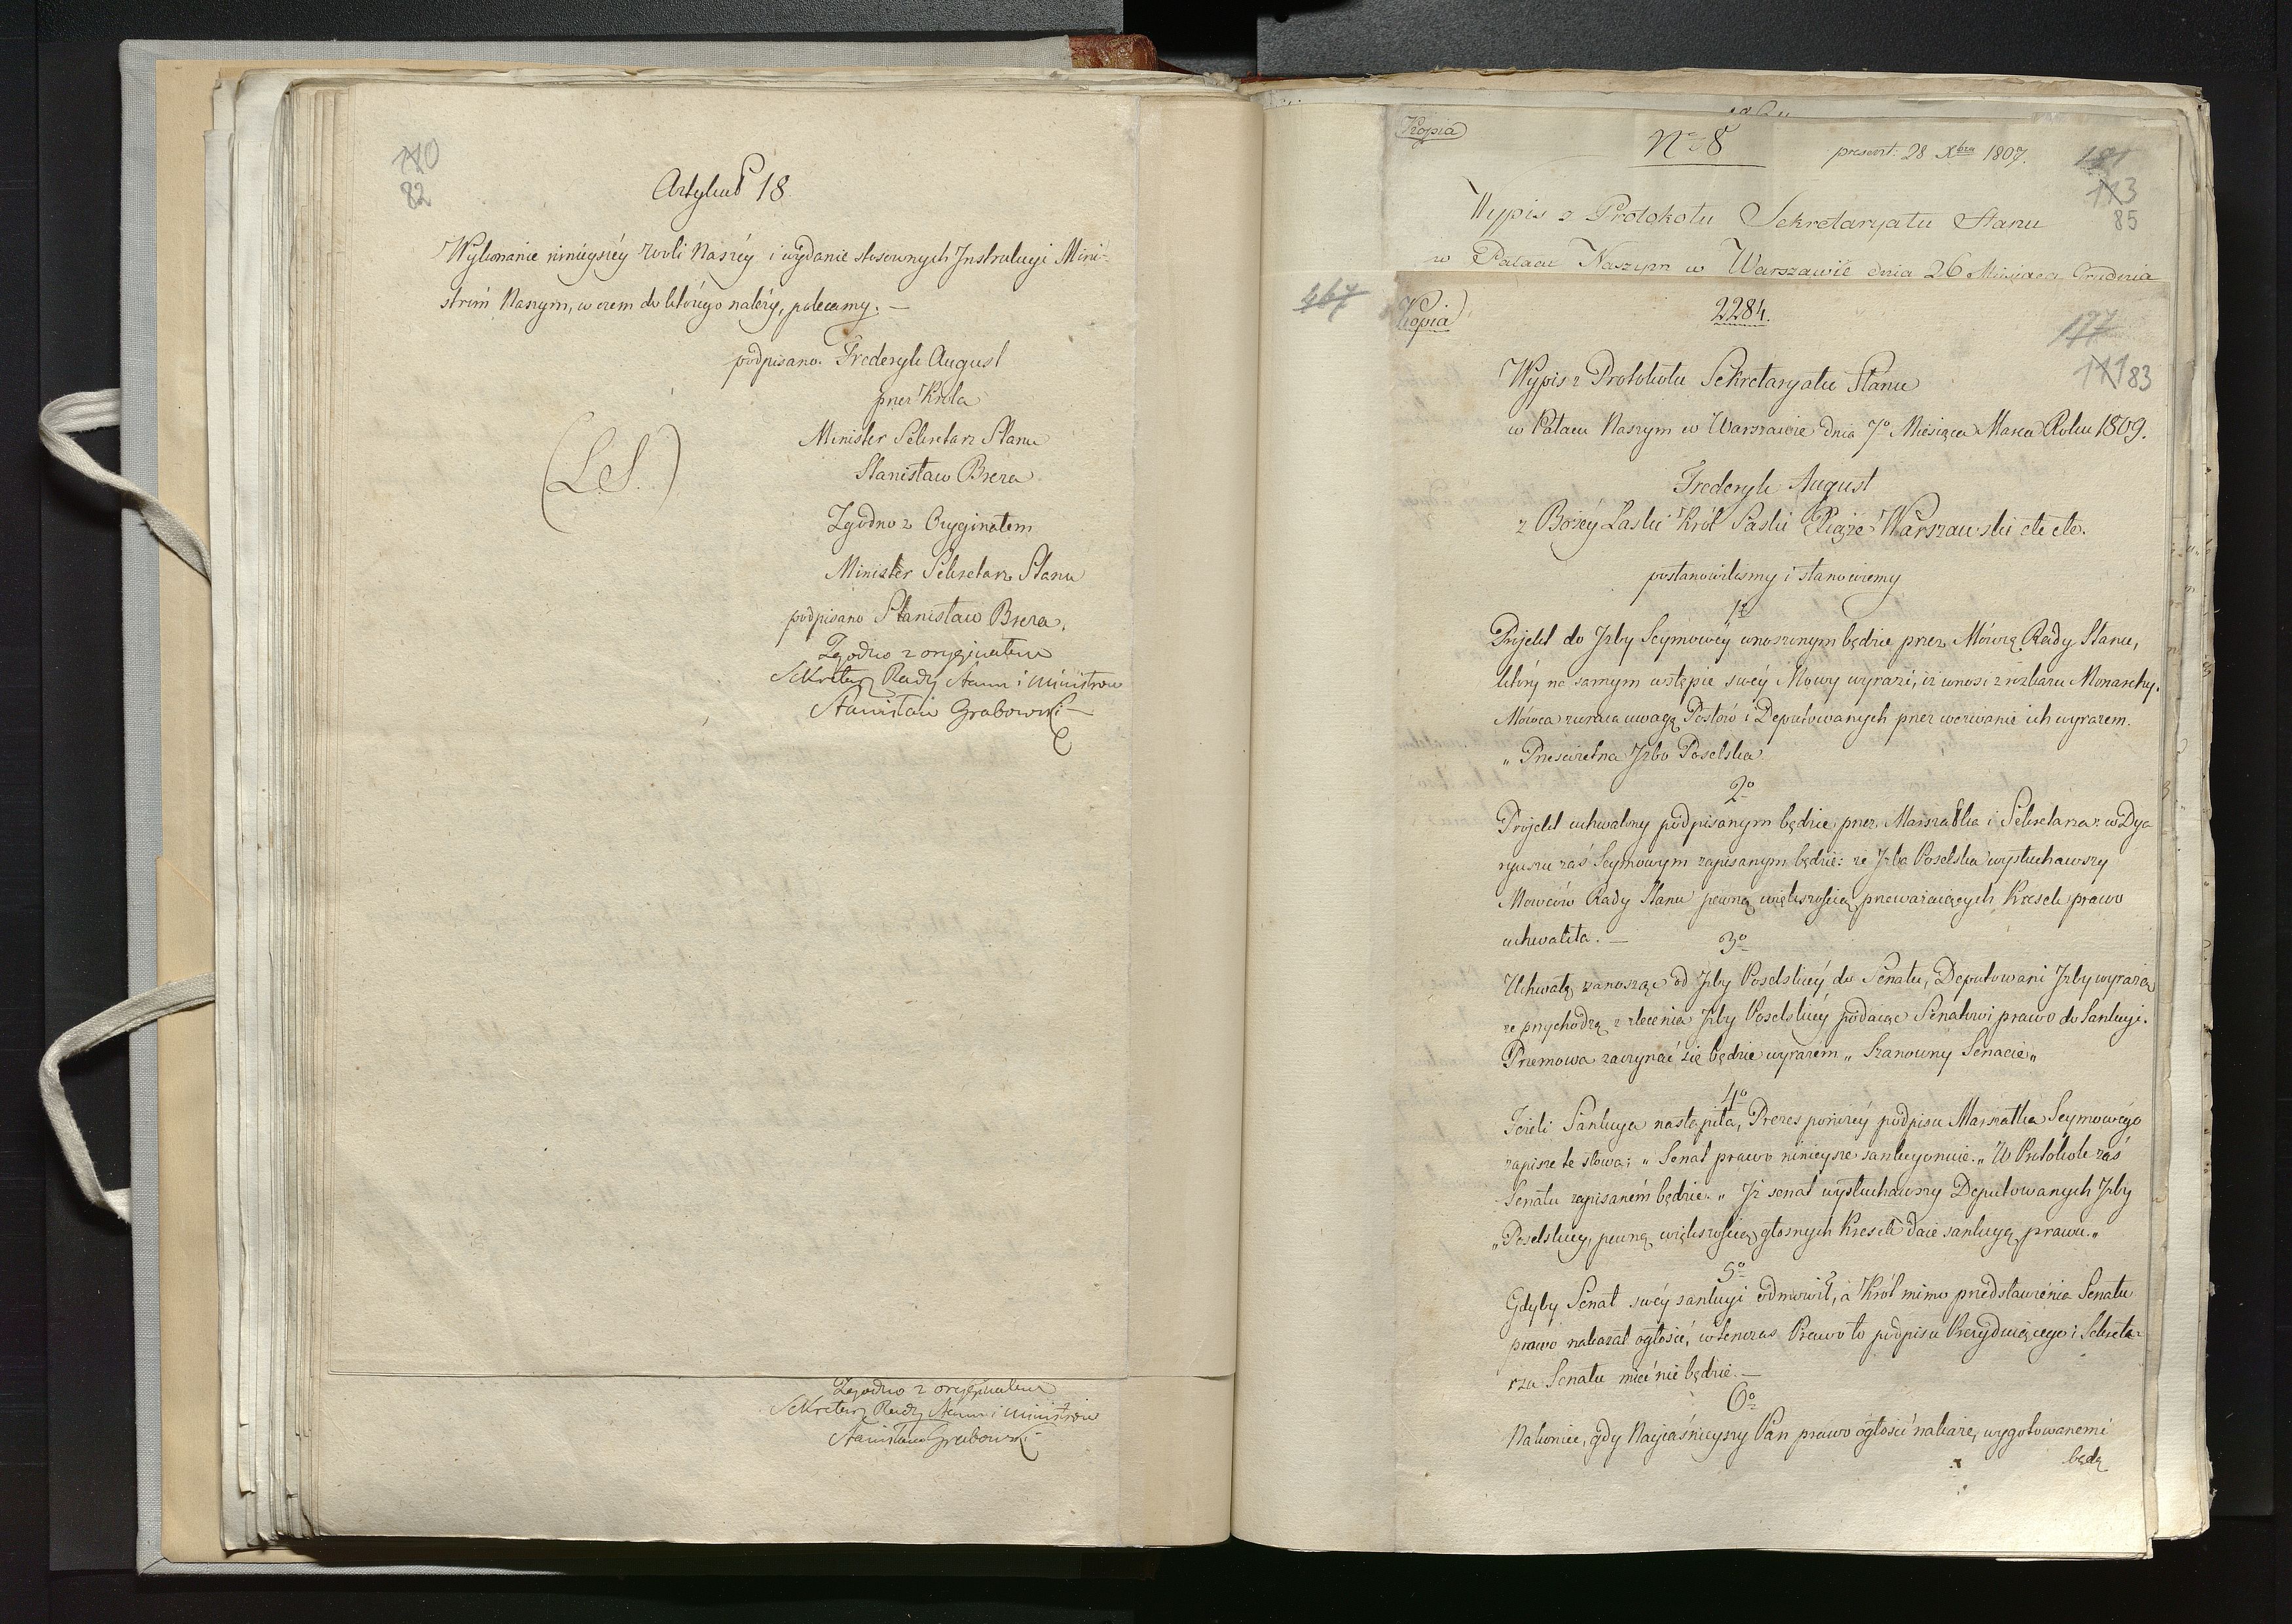 110
82
Artykuł 18.
Wykonanie ninieyszéy Woli Naszéy i wydanie stosownych Instrukcyi Mini-
strom Naszym, w czem do którego należy, polecamy. —
podpisano. Frederyk August
przez Króla
Minister Sekretarz Stanu
(L.S.)
Stanisław Breza
Zgodno z Oryginałem
Minister Sekretarz Stanu
podpisano Stanisław Breza.
Zgodno z oryginałem
Sekretarz Rady Stanu i Ministrow
Stanisław Grabowski
Zgodno z oryginałem
Sekretarz Rady Stanu i Ministrów
Stanisław Grabowski
Kopia
No 8
present: 28 Xbra 1807.
181
113
85
Wypis z Protokołu Sekretaryatu Stanu
w Pałacu Naszym w Warszawie dnia 26 Miesiąca Grudnia
467
Kopia
2284.
177
111 83
Wypis z Protokołu Sekretaryatu Stanu
w Pałacu Naszym w Warszawie dnia 7o Miesiąca Marca Roku 1809.
Frederyk August
z Bożéy Łaski Król Saski Xiąże Warszawski etc etc.
postanowiliśmy i stanowiemy
1o
Projekt do Izby Seymowéy wnoszonym będzie przez Mówcę Rady Stanu,
który na samym wstępie swéy Mowy wyrazi, iż wnosi z rozkazu Monarchy.
Mówca zwraca uwagę Posłów i Deputowanych przez wezwanie ich wyrazem.
„ Prześwietna Izbo Poselska
2o
Projekt uchwalony podpisanym będzie przez Marszałka i Sekretarza: w Dya-
ryuszu zaś Seymowym zapisanym będzie: że Izba Poselska wysłuchawszy
Mowców Rady Stanu pewną większością przeważaiących Kresek prawo
uchwaliła. —
3o
Uchwałę zanosząc od Izby Poselskiéy do Senatu, Deputowani Izby wyrażą
że przychodzą z zlecenia Izby Poselskiéy podaiąc Senatowi prawo do Sankcyi.
Przemowa zaczynać się będzie wyrazem „ Szanowny Senacie „
4o
Jeżeli Sankcya nastąpiła, Prezes poniżéy podpisu Marszałka Seymowego
zapisze te słowa: „ Senat prawo ninieysze sankcyonuie. „ W Protokole zaś
Senatu zapisaném będzie: „ Iż senat wysłuchawszy Deputowanych Izby
„ Poselskiey, pewną większością głosnych Kresek daie sankcyą prawu. „
5o
Gdyby Senat swéy sankcyi odmówił, a Król mimo przedstawienia Senatu
prawo nakazał ogłosić, wtenczas Prawo to podpisu Prezyduiącego i Sekreta-
rza Senatu mieć nie będzie. —
6o
Nakoniec, gdy Nayiaśnieyszy Pan prawo ogłosić nakaże, wygotowanemi
będą